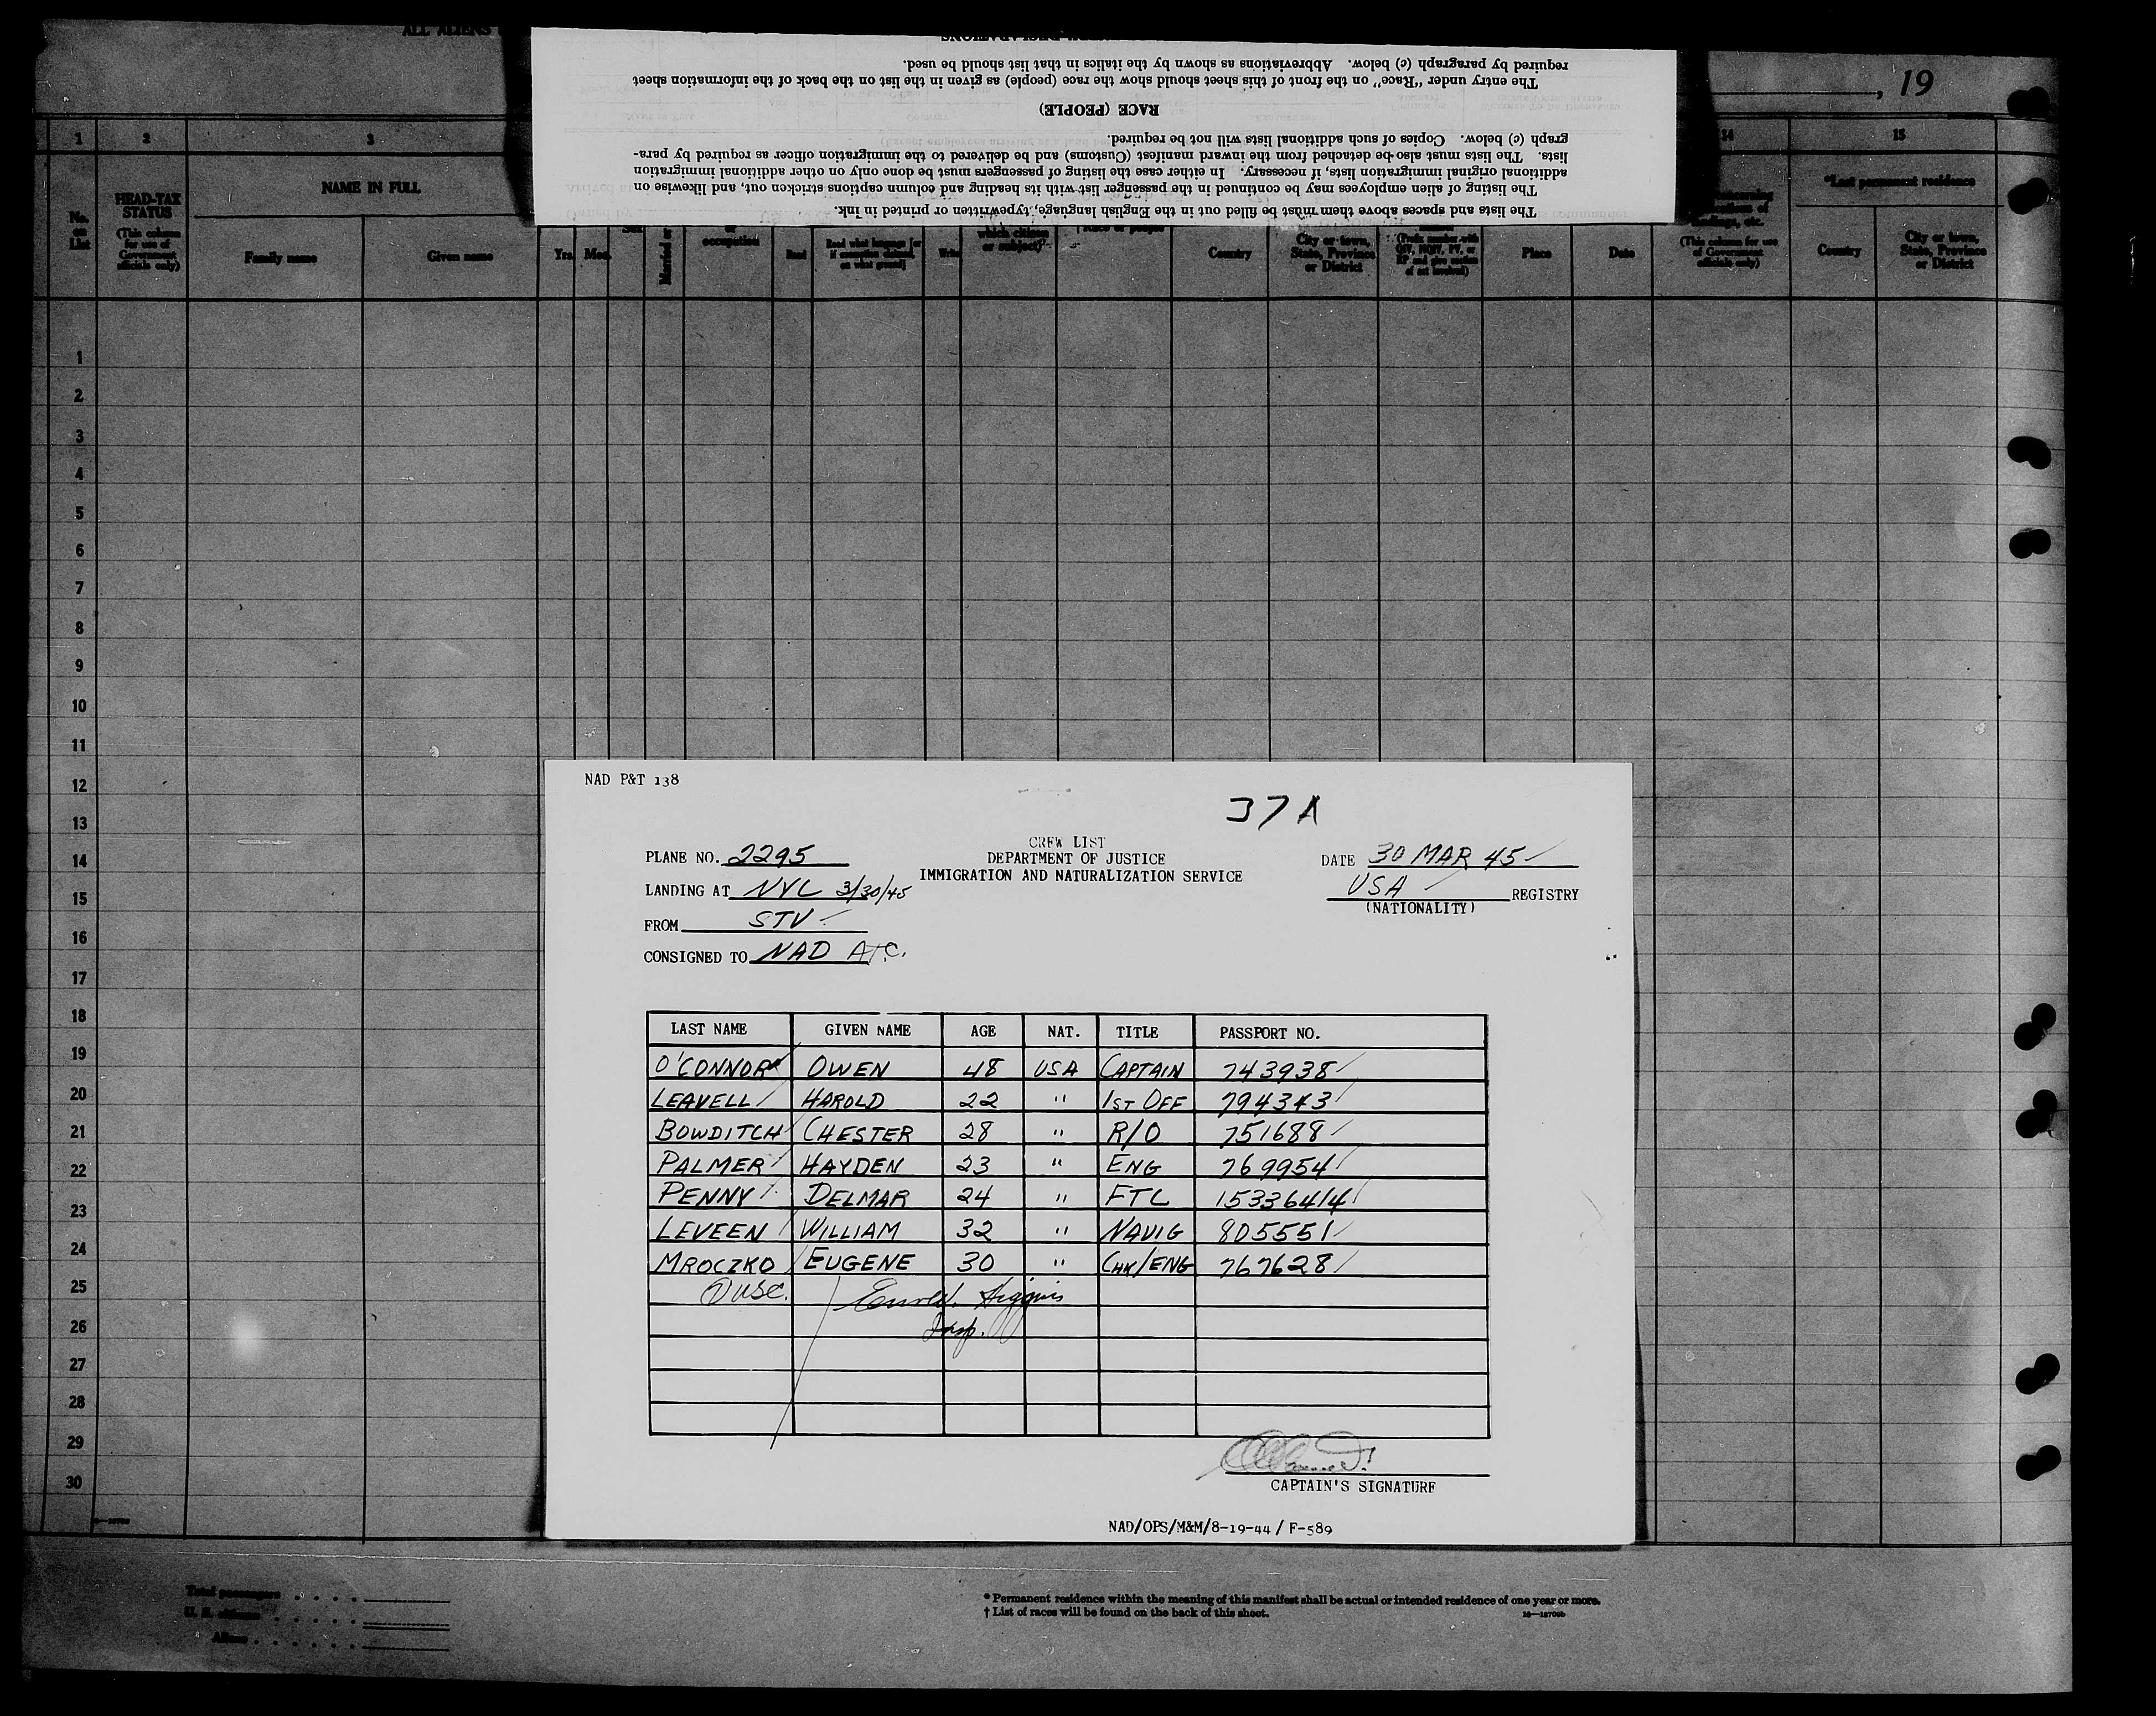 ALL ALIENS
, 19
The lists and spaces above them must be filled out in the English language, typewritten or printed in ink.
The listing of alien employees may be continued in the passenger list with its heading and column captions stricken out, and likewise on
additional original immigration lists, if necessary. In either case the listing of passengers must be done only on other additional immigration
lists. The lists must also be detached from the inward manifest (Customs) and be delivered to the immigration officer as required by para-
graph (c) below. Copies of such additional lists will not be required.
RACE (PEOPLE)
The entry under "Race" on the front of this sheet should show the race (people) as given in the list on the back of the information sheet
required by paragraph (c) below. Abbreviations as shown by the italics in that list should be used.
1 2 3 14 15
No. on List
HEAD-TAX STATUS
(This column for use of Government officials only)
NAME IN FULL
Family name Given name
Yrs. Mos.
Sex
Married or
occupation
Read
Read what language [or if exemption claimed, on what ground]
Write
which citizen or subject
Race or people
Country
City or town, State, Province or District
(Prefix number with QIV, NQIV, PV, or RP and give section of act involved)
Place
Date
(This column for use of Government officials only)
*Last permanent residence
Country
City or town, State, Province or District
1
2
3
4
5
6
7
8
9
10
11
12
13
14
15
16
17
18
19
20
21
22
23
24
25
26
27
28
29
30
NAD P&T 138
37A
CREW LIST
DEPARTMENT OF JUSTICE
IMMIGRATION AND NATURALIZATION SERVICE
PLANE NO. 2295
LANDING AT NYC 3/30/45
FROM STV
CONSIGNED TO NAD ATC.
DATE 30 MAR 45
USA REGISTRY
(NATIONALITY)
LAST NAME GIVEN NAME AGE NAT. TITLE PASSPORT NO.
O'CONNOR OWEN 48 USA CAPTAIN 743938
LEAVELL HAROLD 22 " 1ST OFF 794343
BOWDITCH CHESTER 28 " R/O 751688
PALMER HAYDEN 23 " ENG 769954
PENNY DELMAR 24 " FTC 15336414
LEVEEN WILLIAM 32 " NAVIG 805551
MROCZKO EUGENE 30 " CHK/ENG 767628
7 USC. Higgins
Insp.
CAPTAIN'S SIGNATURE
NAD/OPS/M&M/8-19-44 / F-589
Total passengers
U. S. citizens
Aliens
* Permanent residence within the meaning of this manifest shall be actual or intended residence of one year or more.
† List of races will be found on the back of this sheet.